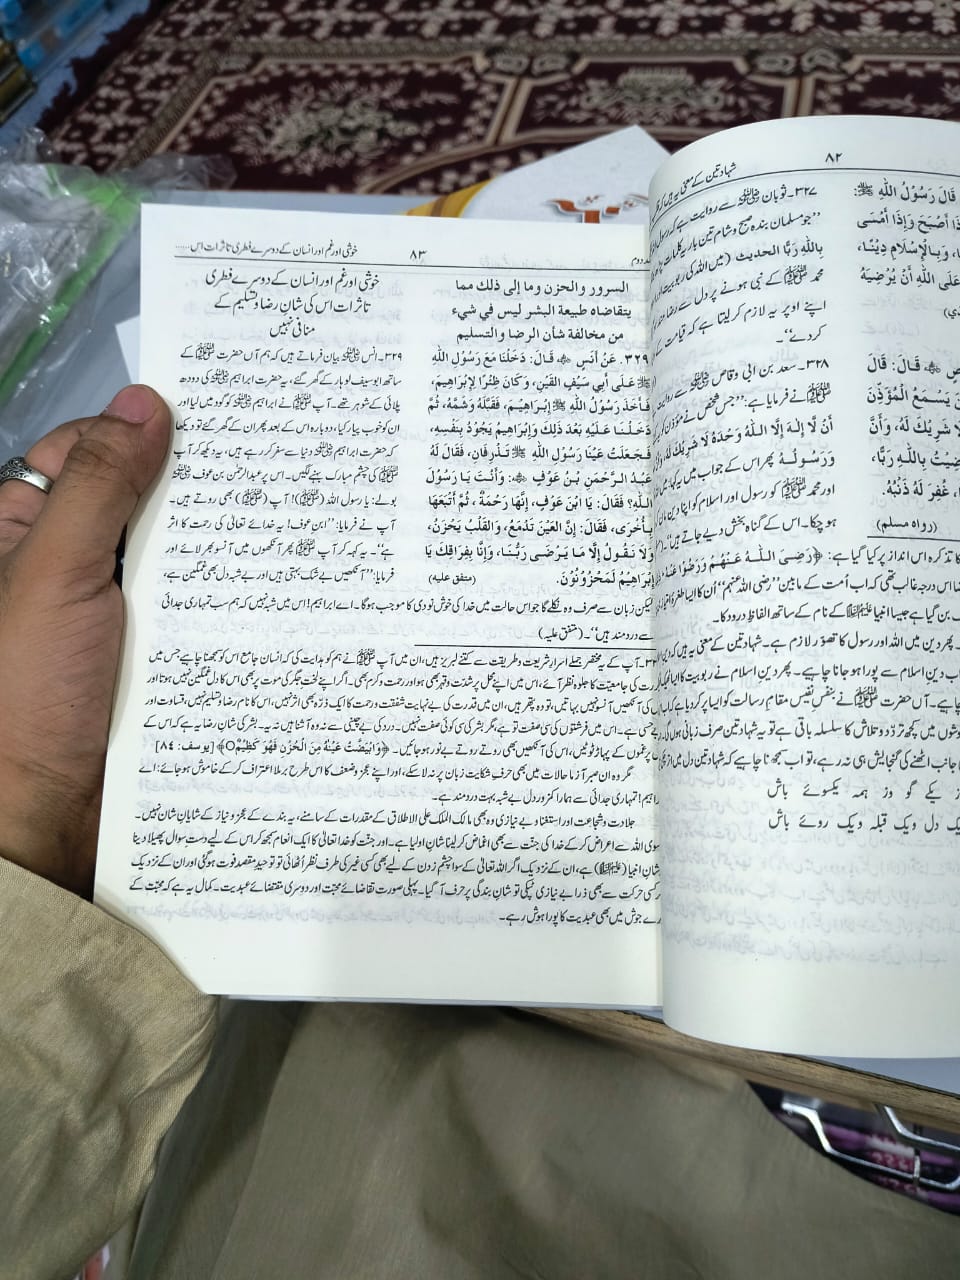 ۸۲
شہادتین کے معنی یہ ہیں کہ
قَالَ رَسُوْلُ اللّٰهِ ﷺ:
ذَا أَصْبَحَ وَإِذَا أَمْسَى
، وَبِالْإِسْلَامِ دِيْنًا،
عَلَى اللّٰهِ أَنْ يُرْضِيَهُ
۳۲۷۔ثوبان ﷺ سے روایت ہے کہ رسول
”جو مسلمان بندہ صبح و شام تین بار یہ کلمات
بِاللّٰهِ رَبًّا الحدیث (میں اللہ کی ربوبیت اور
محمد ﷺ کے نبی ہونے پر دل سے رضا مند
اپنے اوپر یہ لازم کر لیتا ہے کہ قیامت کے
کر دے“۔
قَالَ: قَالَ
نَ يَسْمَعُ الْمُؤَذِّنَ
لَا شَرِيْكَ لَهُ، وَأَنَّ
ضِيْتُ بِاللّٰهِ رَبًّا،
، غُفِرَ لَهُ ذَنْبُهُ.
(رواه مسلم)
۳۲۸۔ سعد بن ابی وقاص ﷺ سے روایت
ﷺ نے فرمایا ہے: ”جس شخص نے مؤذن کی
أَنْ لَا إِلٰهَ إِلَّا اللّٰهُ وَحْدَهُ لَا شَرِيْكَ لَهُ
وَرَسُوْلُهُ پھر اس کے جواب میں یہ کہا میں
اور محمد ﷺ کو رسول اور اسلام کو اپنا دین
ہو چکا۔ اس کے گناہ بخش دیے جاتے ہیں“۔
کا تذکرہ اس انداز پر کیا گیا ہے: ﴿رَضِيَ اللّٰهُ عَنْهُمْ وَرَضُوْا عَنْهُ﴾
ضا اس درجہ غالب تھی کہ اب اُمت کے مابین ”رضی اللہ عنہم“ اُن کا ایسا طغرا
بن گیا ہے جیسا انبیا ﷺ کے نام کے ساتھ الفاظِ درود کا۔
پھر دین میں اللہ اور رسول کا تصور لازم ہے۔ شہادتین کے معنی یہ ہیں کہ
ب دین اسلام سے پورا ہو جانا چاہیے۔ پھر دین اسلام نے ربوبیت کا ایسا
چاہیے۔ آں حضرت ﷺ نے بنفسِ نفیس مقامِ رسالت کو ایسا پُر کر دیا ہے کہ
وشوں میں کچھ تردّد و تلاش کا سلسلہ باقی ہے تو یہ شہادتین صرف زبانی ہوں گی
جانب اٹھنے کی گنجایش ہی نہ رہے، تو اب سمجھنا چاہیے کہ شہادتین دل میں اُتر
یکے گو وز ہمہ یکسوئے باش
یک دل ویک قبلہ ویک روئے باش
۸۳
خوشی اور غم اور انسان کے دوسرے فطری تاثرات اس......
السرور والحزن وما إلى ذلك مما
يتقاضاه طبيعة البشر ليس في شيء
من مخالفة شأن الرضا والتسليم
٣٢٩. عَنْ أَنَسٍ ﷺ قَالَ: دَخَلْنَا مَعَ رَسُوْلِ اللّٰهِ
ﷺ عَلَى أَبِي سَيْفِ الْقَيْنِ، وَكَانَ ظِئْرًا لِإِبْرَاهِيْمَ،
فَأَخَذَ رَسُوْلُ اللّٰهِ ﷺ إِبْرَاهِيْمَ، فَقَبَّلَهُ وَشَمَّهُ، ثُمَّ
دَخَلْنَا عَلَيْهِ بَعْدَ ذٰلِكَ وَإِبْرَاهِيْمُ يَجُوْدُ بِنَفْسِهِ،
فَجَعَلَتْ عَيْنَا رَسُوْلِ اللّٰهِ ﷺ تَذْرِفَانِ، فَقَالَ لَهُ
عَبْدُ الرَّحْمٰنِ بْنُ عَوْفٍ ﷺ: وَأَنْتَ يَا رَسُوْلَ
اللّٰهِ؟ فَقَالَ: يَا ابْنَ عَوْفٍ، إِنَّهَا رَحْمَةٌ، ثُمَّ أَتْبَعَهَا
بِأُخْرَى، فَقَالَ: إِنَّ الْعَيْنَ تَدْمَعُ، وَالْقَلْبُ يَحْزَنُ،
وَلَا نَقُوْلُ إِلَّا مَا يَرْضَى رَبُّنَا، وَإِنَّا بِفِرَاقِكَ يَا
إِبْرَاهِيْمُ لَمَحْزُوْنُوْنَ. (متفق عليه)
خوشی اور غم اور انسان کے دوسرے فطری
تاثرات اس کی شانِ رضا و تسلیم کے
منافی نہیں
۳۲۹۔ انس ﷺ بیان فرماتے ہیں کہ ہم آں حضرت ﷺ کے
ساتھ ابوسیف لوہار کے گھر گئے، یہ حضرت ابراہیم ﷺ کی دودھ
پلائی کے شوہر تھے۔ آپ ﷺ نے ابراہیم ﷺ کو گود میں لیا اور
ان کو خوب پیار کیا، دوبارہ اس کے بعد پھر ان کے گھر گئے تو دیکھا
کہ حضرت ابراہیم ﷺ دنیا سے سفر کر رہے ہیں، یہ دیکھ کر آپ
ﷺ کی چشم مبارک بہنے لگیں۔ اس پر عبدالرحمٰن بن عوف ﷺ
بولے: یا رسول اللہ (ﷺ)! آپ (ﷺ) بھی روتے ہیں۔
آپ نے فرمایا: ”ابن عوف! یہ خدائے تعالیٰ کی رحمت کا اثر
ہے“۔ یہ کہہ کر آپ ﷺ پھر آنکھوں میں آنسو بھر لائے اور
فرمایا: ”آنکھیں بے شک بہتی ہیں اور بے شبہ دل بھی غمگین ہے،
لیکن زبان سے صرف وہ نکلے گا جو اس حالت میں خدا کی خوش نودی کا موجب ہوگا۔ اے ابراہیم! اس میں شبہ نہیں کہ ہم سب تمہاری جدائی
سے درد مند ہیں“۔ (متفق علیہ)
آپ کے یہ مختصر جملے اسرارِ شریعت و طریقت سے کتنے لبریز ہیں، ان میں آپ ﷺ نے ہم کو ہدایت کی کہ انسان جامع اس کو سمجھنا چاہیے جس میں
رت کی جامعیت کا جلوہ نظر آئے، اس میں اپنے محل پر شدّت و قہر بھی ہو اور رحمت و کرم بھی۔ اگر اپنے لختِ جگر کی موت پر بھی اس کا دل غمگین نہیں ہوتا اور
کی آنکھیں آنسو نہیں بہاتیں، تو وہ پتھر ہیں، ان میں قدرت کی بے نہایت شفقت و رحمت کا ایک ذرّہ بھی اثر نہیں، اس کا نام رضا و تسلیم نہیں، قساوت اور
ہے۔ اس میں فرشتوں کی سی صفت تو ہے، مگر بشر کی سی کوئی صفت نہیں۔ درد کی بے چینی سے نہ وہ آشنا ہیں نہ یہ۔ بشر کی شانِ رضا یہ ہے کہ اس کے
پر غموں کے پہاڑ ٹوٹیں، اس کی آنکھیں بھی روتے روتے بے نور ہو جائیں۔ ﴿وَابْيَضَّتْ عَيْنٰهُ مِنَ الْحُزْنِ فَهُوَ كَظِيْمٌ﴾ [یوسف: ۸۴]
مگر وہ ان صبر آزما حالات میں بھی حرفِ شکایت زبان پر نہ لا سکے، اور اپنے عجز و ضعف کا اس طرح برملا اعتراف کر کے خاموش ہو جائے: اے
ابراہیم! تمہاری جدائی سے ہمارا کمزور دل بے شبہ بہت درد مند ہے۔
جلادت و شجاعت اور استغنا و بے نیازی وہ بھی مالک الملک علی الاطلاق کے مقدرات کے سامنے، یہ بندے کے عجز و نیاز کے شایانِ شان نہیں۔
سوی اللہ سے اعراض کر کے خدا کی جنت سے بھی اغماض کر لینا شانِ اولیا ہے۔ اور جنّت کو خدا تعالیٰ کا ایک انعام سمجھ کر اس کے لیے دستِ سوال پھیلا دینا
شانِ انبیا (ﷺ) ہے، ان کے نزدیک اگر اللہ تعالیٰ کے سوا چشم زدن کے لیے بھی کسی غیر کی طرف نظر اُٹھائی تو توحیدِ مقصد فوت ہو گئی اور ان کے نزدیک
کسی حرکت سے بھی ذرا بے نیازی ٹپکی تو شانِ بندگی پر حرف آ گیا۔ پہلی صورت تقاضائے محبّت اور دوسری مقتضائے عبدیت۔ کمال یہ ہے کہ محبّت کے
جوش میں بھی عبدیت کا پورا ہوش رہے۔